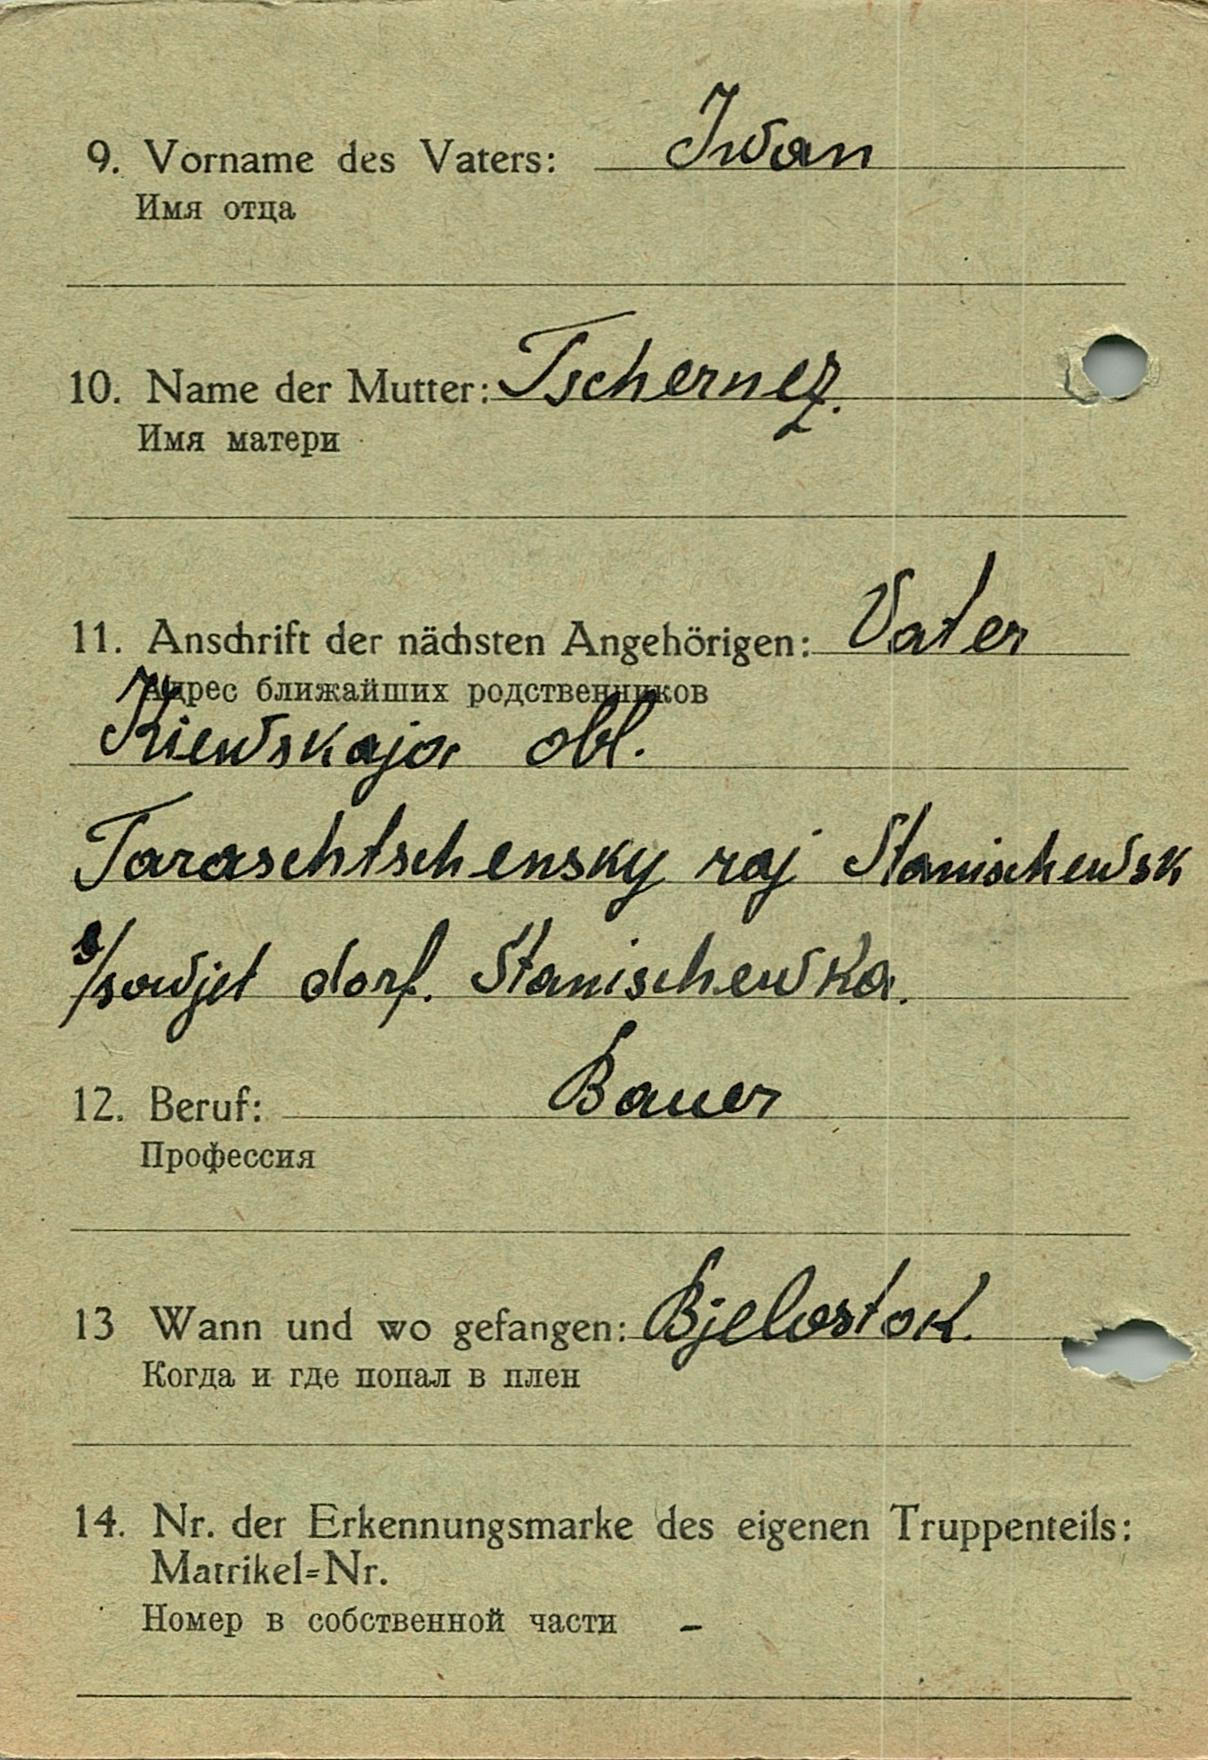 9. Vorname des Vaters: Iwan
Имя отца
10. Name der Mutter: Tschernez.
Имя матери
11. Anschrift der nächsten Angehörigen: Vater
Адрес ближайших родственников
Kiewskaja obl.
Taraschtschensky raj Stanischewsk
s/sowjet dorf. Stanischewka.
12. Beruf: Bauer
Профессия
13 Wann und wo gefangen: Bjelostok.
Когда и где попал в плен
14. Nr. der Erkennungsmarke des eigenen Truppenteils:
Matrikel=Nr.
Номер в собственной части –